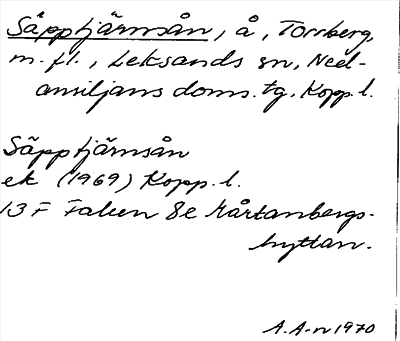 Säpptjärnsån, å, Torrberg,
m. fl., Leksands sn, Ned-
ansiljans doms. tg, Kopp. l.
Säpptjärnsån
ek (1969) Kopp. l.
13 F Falun 8e Mårtanbergs-
hyttan.
A. A-n 1970